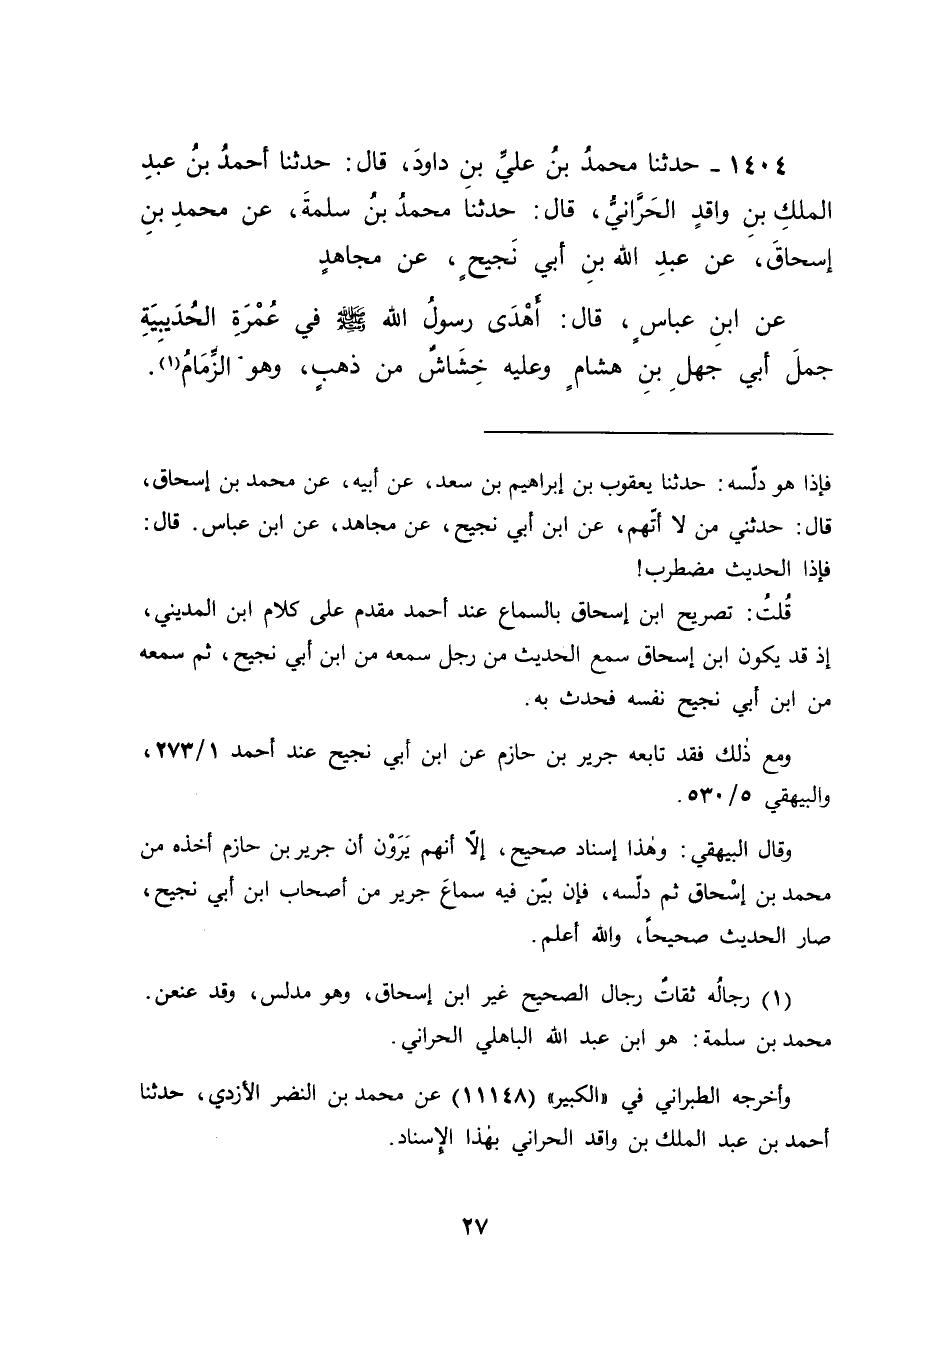 ١٤٠٤ ـ حدثنا محمدُ بنُ عليِّ بنِ داودَ، قال: حدثنا أحمدُ بنُ عبدِ
الملكِ بنِ واقدٍ الحَرَّانيُّ، قال: حدثنا محمدُ بنُ سلمةَ، عن محمدِ بنِ
إسحاقَ، عن عبدِ الله بنِ أبي نَجيحٍ، عن مجاهدٍ
عن ابنِ عباسٍ، قال: أَهْدَى رسولُ الله ﷺ في عُمْرَةِ الحُدَيبِيَةِ
جملَ أبي جهلِ بنِ هشامٍ وعليه خِشَاشٌ من ذهبٍ، وهو الزِّمَامُ(١).
فإذا هو دلّسه: حدثنا يعقوب بن إبراهيم بن سعد، عن أبيه، عن محمد بن إسحاق،
قال: حدثني من لا أتّهم، عن ابن أبي نجيح، عن مجاهد، عن ابن عباس. قال:
فإذا الحديث مضطرب!
قُلتُ: تصريح ابن إسحاق بالسماع عند أحمد مقدم على كلام ابن المديني،
إذ قد يكون ابن إسحاق سمع الحديث من رجل سمعه من ابن أبي نجيح، ثم سمعه
من ابن أبي نجيح نفسه فحدث به.
ومع ذٰلك فقد تابعه جرير بن حازم عن ابن أبي نجيح عند أحمد ٢٧٣/١،
والبيهقي ٥٣٠/٥.
وقال البيهقي: وهٰذا إسناد صحيح، إلّا أنهم يَرَوْن أن جرير بن حازم أخذه من
محمد بن إسْحاق ثم دلّسه، فإن بيّن فيه سماعَ جرير من أصحاب ابن أبي نجيح،
صار الحديث صحيحاً، والله أعلم.
(١) رجالُه ثقاتٌ رجال الصحيح غير ابن إسحاق، وهو مدلس، وقد عنعن.
محمد بن سلمة: هو ابن عبد الله الباهلي الحراني.
وأخرجه الطبراني في «الكبير» (١١١٤٨) عن محمد بن النضر الأزدي، حدثنا
أحمد بن عبد الملك بن واقد الحراني بهٰذا الإسناد.
٢٧